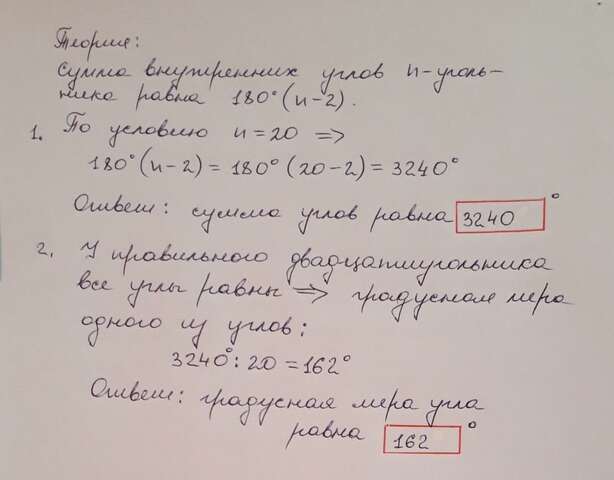 Теория:
сумма внутренних углов n-уголь-
ника равна 180°(n-2).
1. По условию n=20 ⇒
180°(n-2) = 180°(20-2) = 3240°
Ответ: сумма углов равна 3240°
2. У правильного двадцатиугольника
все углы равны ⇒ градусная мера
одного из углов:
3240°:20=162°
Ответ: градусная мера угла
равна 162°